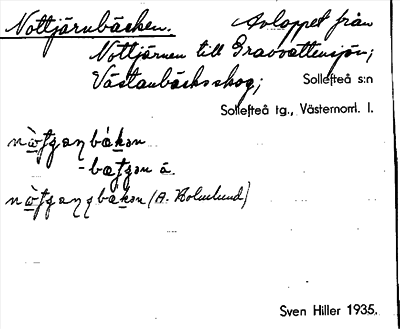 Nottjärnbäcken. Avloppet från
Nottjärnen till Graovattensjön;
Västanbäcksskog; Sollefteå s:n
Sollefteå tg., Västernorrl. l.
-bætʃən å.
(A. Holmlund)
Sven Hiller 1935.